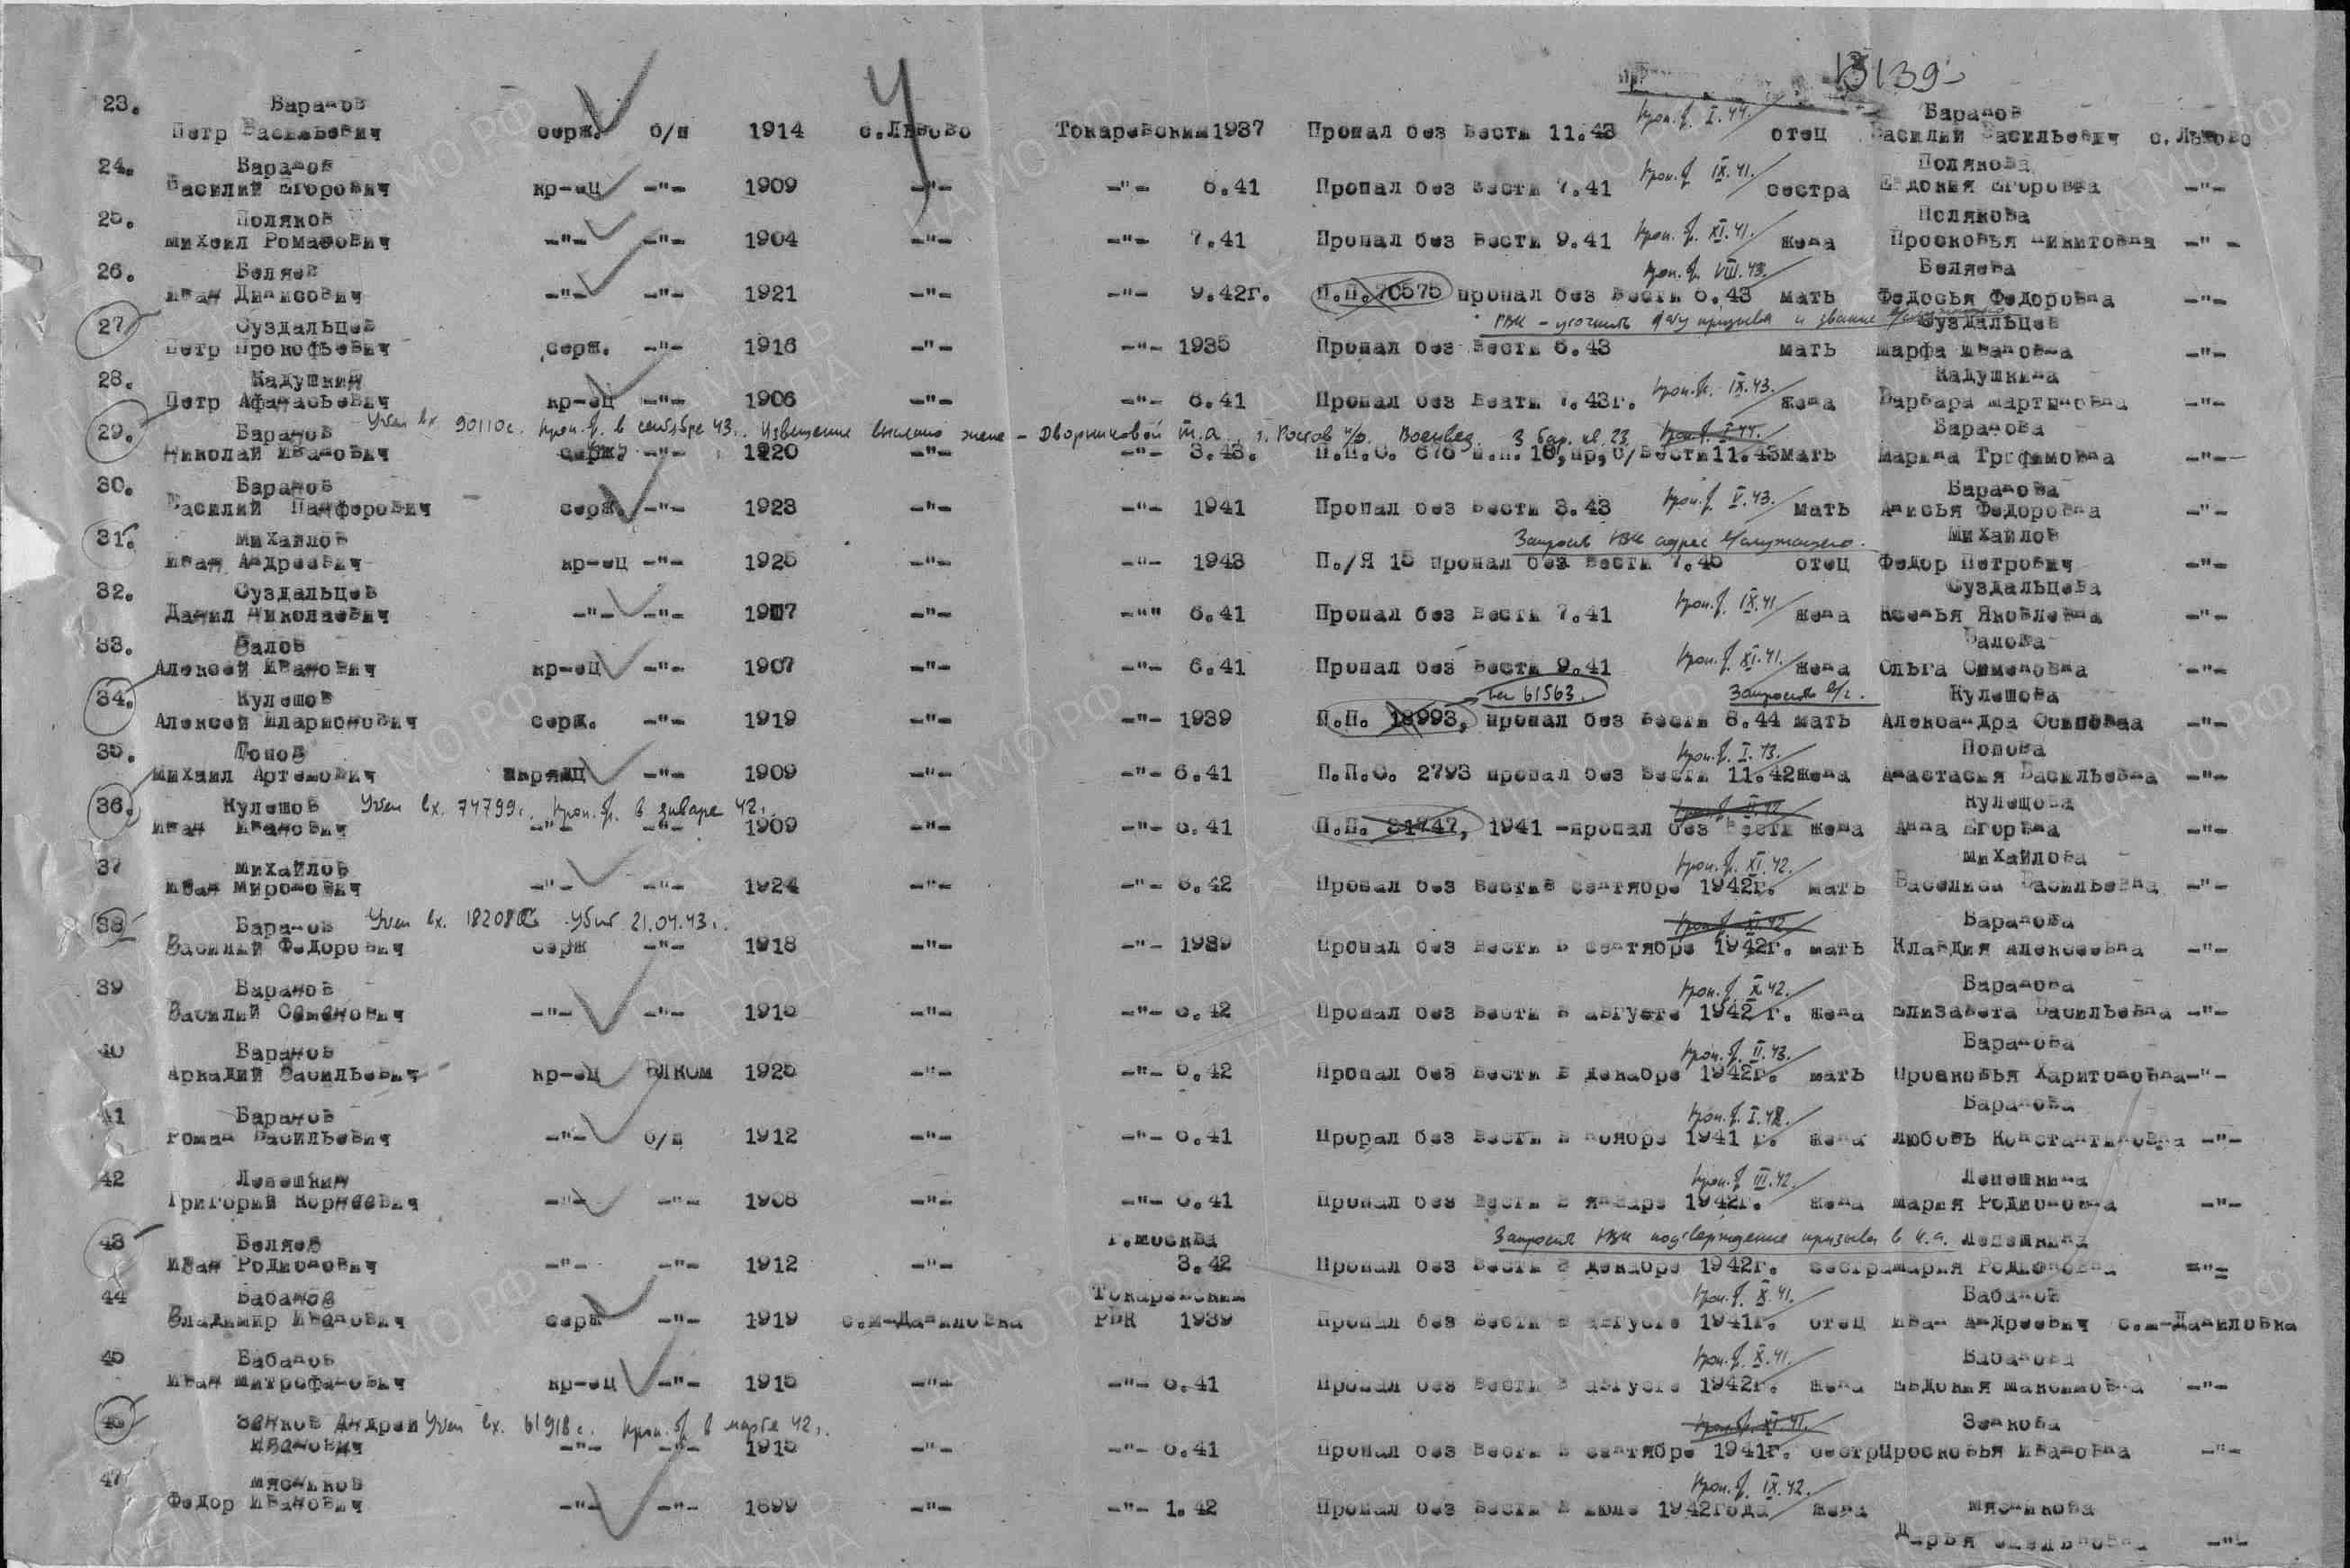 13139
23. Баранов Кроп. б. I.44. Баранов
Петр Васильевич серж. б/п 1914 с.Львово Токаревским 1937 Пропал без вести 11.43 отец Василий Васильевич с.Львово
24. Баранов Кроп. б. IX.41. Полякова
Василий Егорович кр-ец -"- 1909 -"- -"- 6.41 Пропал без вести 7.41 сестра Евдокия Егоровна -"-
25. Поляков Кроп. б. XI.41. Полякова
Михаил Романович -"- -"- 1904 -"- -"- 7.41 Пропал без вести 9.41 жена Просковья Никитовна -"-
26. Беляев Кроп. б. VIII.43. Беляева
Иван Динисович -"- -"- 1921 -"- -"- 9.42г. П.П.70575 пропал без вести 6.43 мать Федосья Федоровна -"-
27 Суздальцев РВК - уточнить дату призыва и звание Суздальцев
Петр Прокофьевич серж. -"- 1916 -"- -"- 1935 Пропал без вести 6.43 мать Марфа Ивановна -"-
28. Кадушкин Кроп. б. IX.43. Кадушкина
Петр Афанасьевич кр-ец -"- 1906 -"- -"- 6.41 Пропал без веати 7.43г. жена Варвара Мартиновна -"-
29. Баранов Учтен вх. 90110с. Кроп. б. в сентябре 43. Извещение выслано жене - Дворниковой т.а. г. Ростов Военвед. 3 бар. кв. 23 Кроп. б. I.44. Баранова
Николай Иванович серж. -"- 1920 -"- -"- 3.43. П.П.С. 676 п.п. 16, пр, б/вести11.43мать Марина Трофимовна -"-
30. Баранов Кроп. б. V.43. Баранова
Василий Панферович серж. -"- 1923 -"- -"- 1941 Пропал без вести 3.43 мать Анисья Федоровна -"-
31. Михайлов Запросить РВК адрес в/служащего. Михайлов
Иван Андреевич кр-ец -"- 1925 -"- -"- 1943 П./Я 15 пропал без вести 7.45 отец Федор Петрович -"-
32. Суздальцев Кроп. б. IX.41 Суздальцева
Данил Николаевич -"- -"- 1907 -"- -"" 6.41 Пропал без вести 7.41 жена Ксенья Яковлевна -"-
33. Валов Кроп. б. XI.41. Валова
Алексей Иванович кр-ец -"- 1907 -"- -"- 6.41 Пропал без вести 9.41 жена Ольга Семеновна -"-
34. Кулешов 61563. Запросить Кулешова
Алексей Иларионович серж. -"- 1919 -"- -"- 1939 П.П. 18993, пропал без вести 8.44 мать Александра Осиповна -"-
35. Попов Кроп. б. I.43. Попова
Михаил Артемович -"- 1909 -"- -"- 6.41 П.П.С. 2793 пропал без вести 11.42жена Анастасия Васильевна -"-
36. Кулешов Учтен вх. 74799с. Кроп. б. в январе 42г. Кулешова
Иван Иванович -"- -"- 1909 -"- -"- 6.41 П.П. 31747, 1941 -пропал без вести жена Анна Егорвна -"-
37 Михайлов Кроп. б. XI.42. Михайлова
Иван Миронович -"- -"- 1924 -"- -"- 8.42 Пропал без вестив сентябре 1942г. мать Василиса Васильевна -"-
38 Баранов Учтен вх. 18208 Убит 21.04.43г. Кроп. б. XI.42. Баранова
Василий Федорович серж -"- 1918 -"- -"- 1939 Пропал без вести в сентябре 1942г. мать Клавдия Алексеевна -"-
39 Баранов Кроп. б. X.42. Баранова
Василий Семенович -"- -"- 1915 -"- -"- 6.42 Пропал без вести в августе 1942 г. жена Елизавета Васильевна -"-
40 Баранов Кроп. б. II.43. Баранова
Аркадий Васильевич кр-ец ВЛКОМ 1925 -"- -"- 6.42 Пропал без вести в декабре 1942г. мать Просковья Харитоновна-"-
41 Баранов Кроп. б. I.42. Баранова
Роман Васильевич -"- б/п 1912 -"- -"- 6.41 Прорал без вести в ноябре 1941 г. жена Любовь Константиновна -"-
42 Лепешкин Кроп. б. III.42. Лепешкина
Григорий Корнеевич -"- -"- 1908 -"- -"- 6.41 Пропал без вести в январе 1942г. жена Мария Родионовна -"-
43 Беляев г.Москва Запросить РВК подтверждение призыва в к.а. Лепешкина
Иван Родионович -"- -"- 1912 -"- 3.42 Пропал без вести в декабре 1942г. сестраМария Родионовна -"-
44 Бабанов Токаревским Кроп. б. X.41. Бабанов
Владимир Иванович серж -"- 1919 с.М-Даниловка РВК 1939 Пропал без вести в августе 1941г. отец Иван Андреевич с.М-Даниловка
45 Бабанов Кроп. б. X.41. Бабанова
Иван Митрофанович кр-ец -"- 1915 -"- -"- 6.41 Пропал без вести в августе 1942г. жена Евдокия Максимовна -"-
46 Зенков Андрей Учтен вх. 61918с. Кроп. б. в марте 42г. Кроп. б. XI.41. Зенкова
Иванович -"- -"- 1915 -"- -"- 6.41 Пропал без вести в сентябре 1941г. сестрПросковья Ивановна -"-
47 Мясников Кроп. б. IX.42.
Федор Иванович -"- -"- 1899 -"- -"- 1.42 Пропал без вести в июле 1942года жена Мясникова
Дарья Емельновна -"-